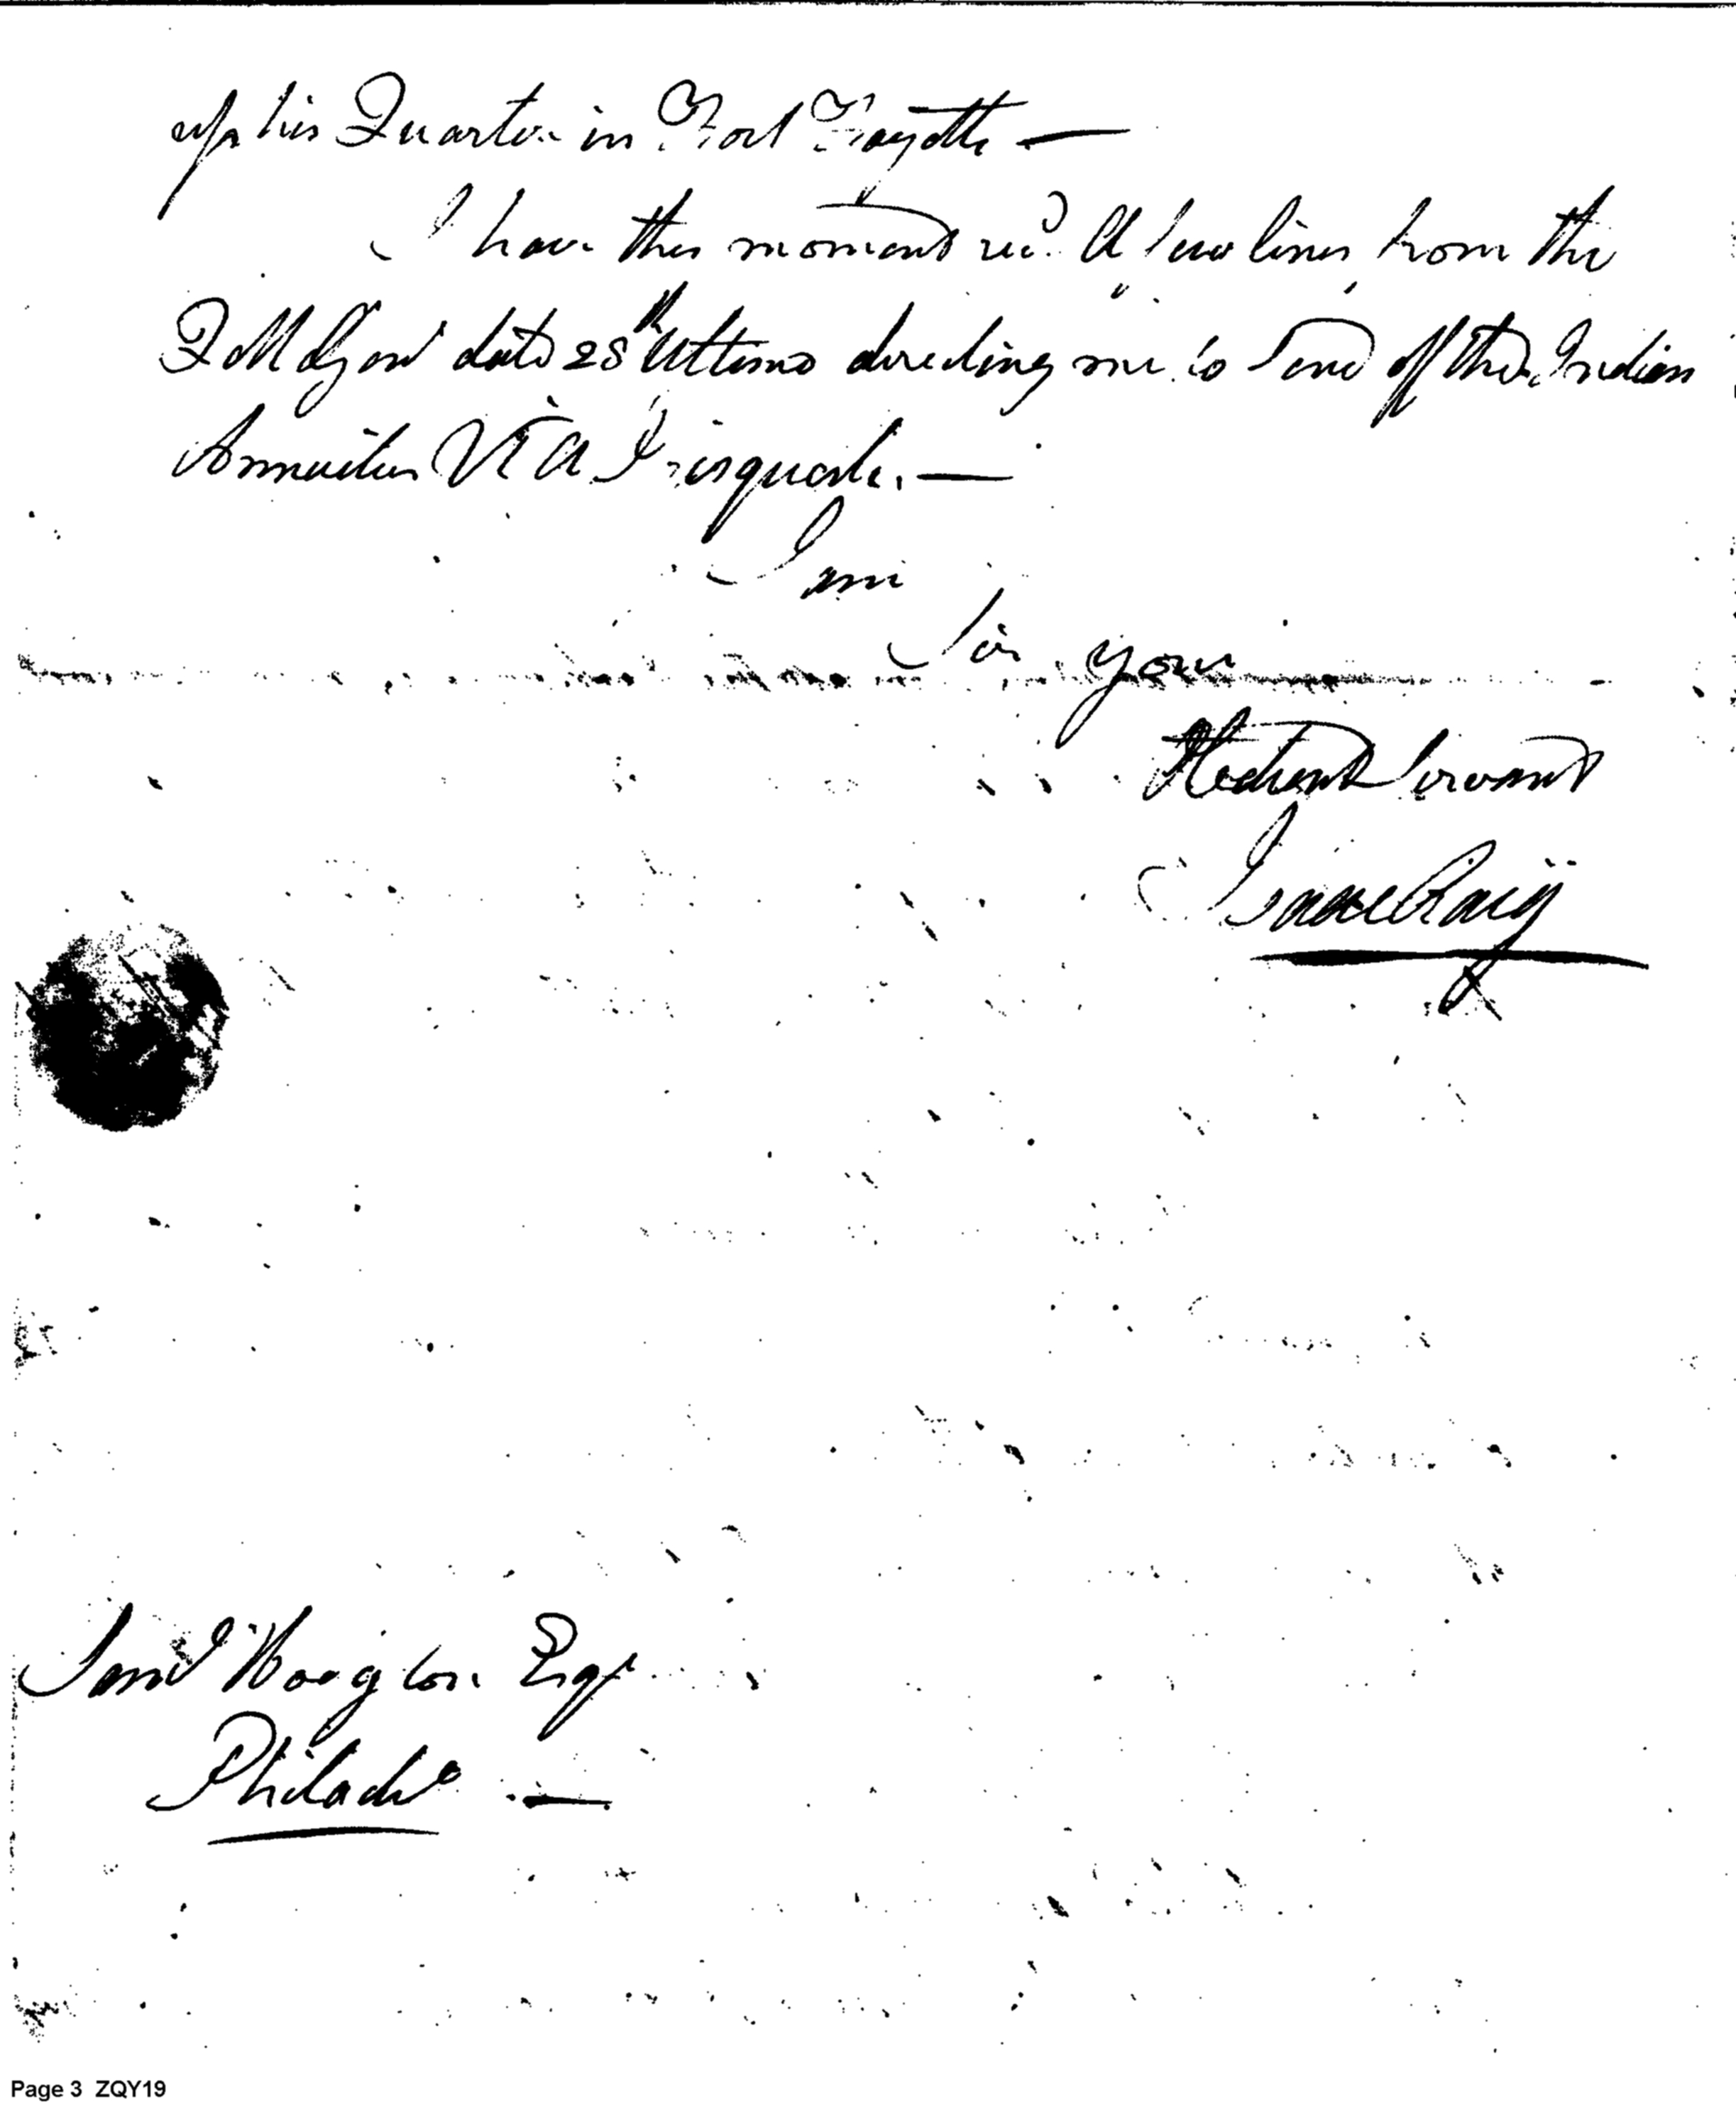 up his Quarters in Fort Fayette —
I have this moment recd. A few lines from the
Q M Genl date 28th Ultimo directing me to Send off the Indian
Annuities VIA Presquile. —
I am
Sir your
Obedient Servant
Isaac Craig
Saml Hodgdon Esqr
Philada —
Page 3 ZQY19